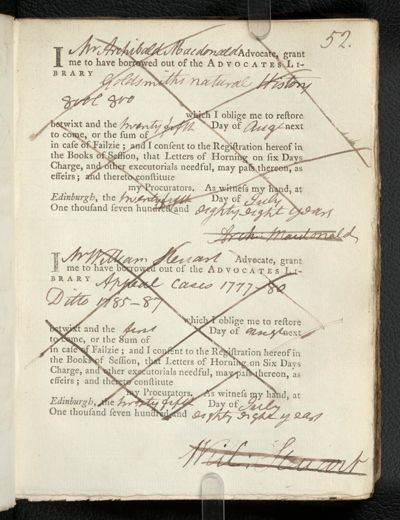 52.
I Mr Archibald Macdonald Advocate, grant
me to have borrowed out of the ADVOCATES LI-
BRARY Goldsmiths natural History
8 vol 8vo
which I oblige me to restore
betwixt and the twenty fifth Day of Augt next
to come, or the sum of
in case of Failzie; and I consent to the Registration hereof in
the Books of Session, that Letters of Horning on six Days
Charge, and other executorials needful, may pass thereon, as
effeirs; and thereto constitute
my Procurators. As witness my hand, at
Edinburgh, the twenty fifth Day of July
One thousand seven hundred and eighty eight years
Archd. Macdonald
I Mr William Steuart Advocate, grant
me to have borrowed out of the ADVOCATES LI-
BRARY Appeal Cases 1777-80
Ditto 1785-87
which I oblige me to restore
betwixt and the first Day of Augt next
to come, or the Sum of
in case of Failzie; and I consent to the Registration hereof in
the Books of Session, that Letters of Horning on Six Days
Charge, and other executorials needful, may pass thereon, as
effeirs; and thereto constitute
my Procurators. As witness my hand, at
Edinburgh, the twenty fifth Day of July
One thousand seven hundred and eighty eight years
Will: Steuart